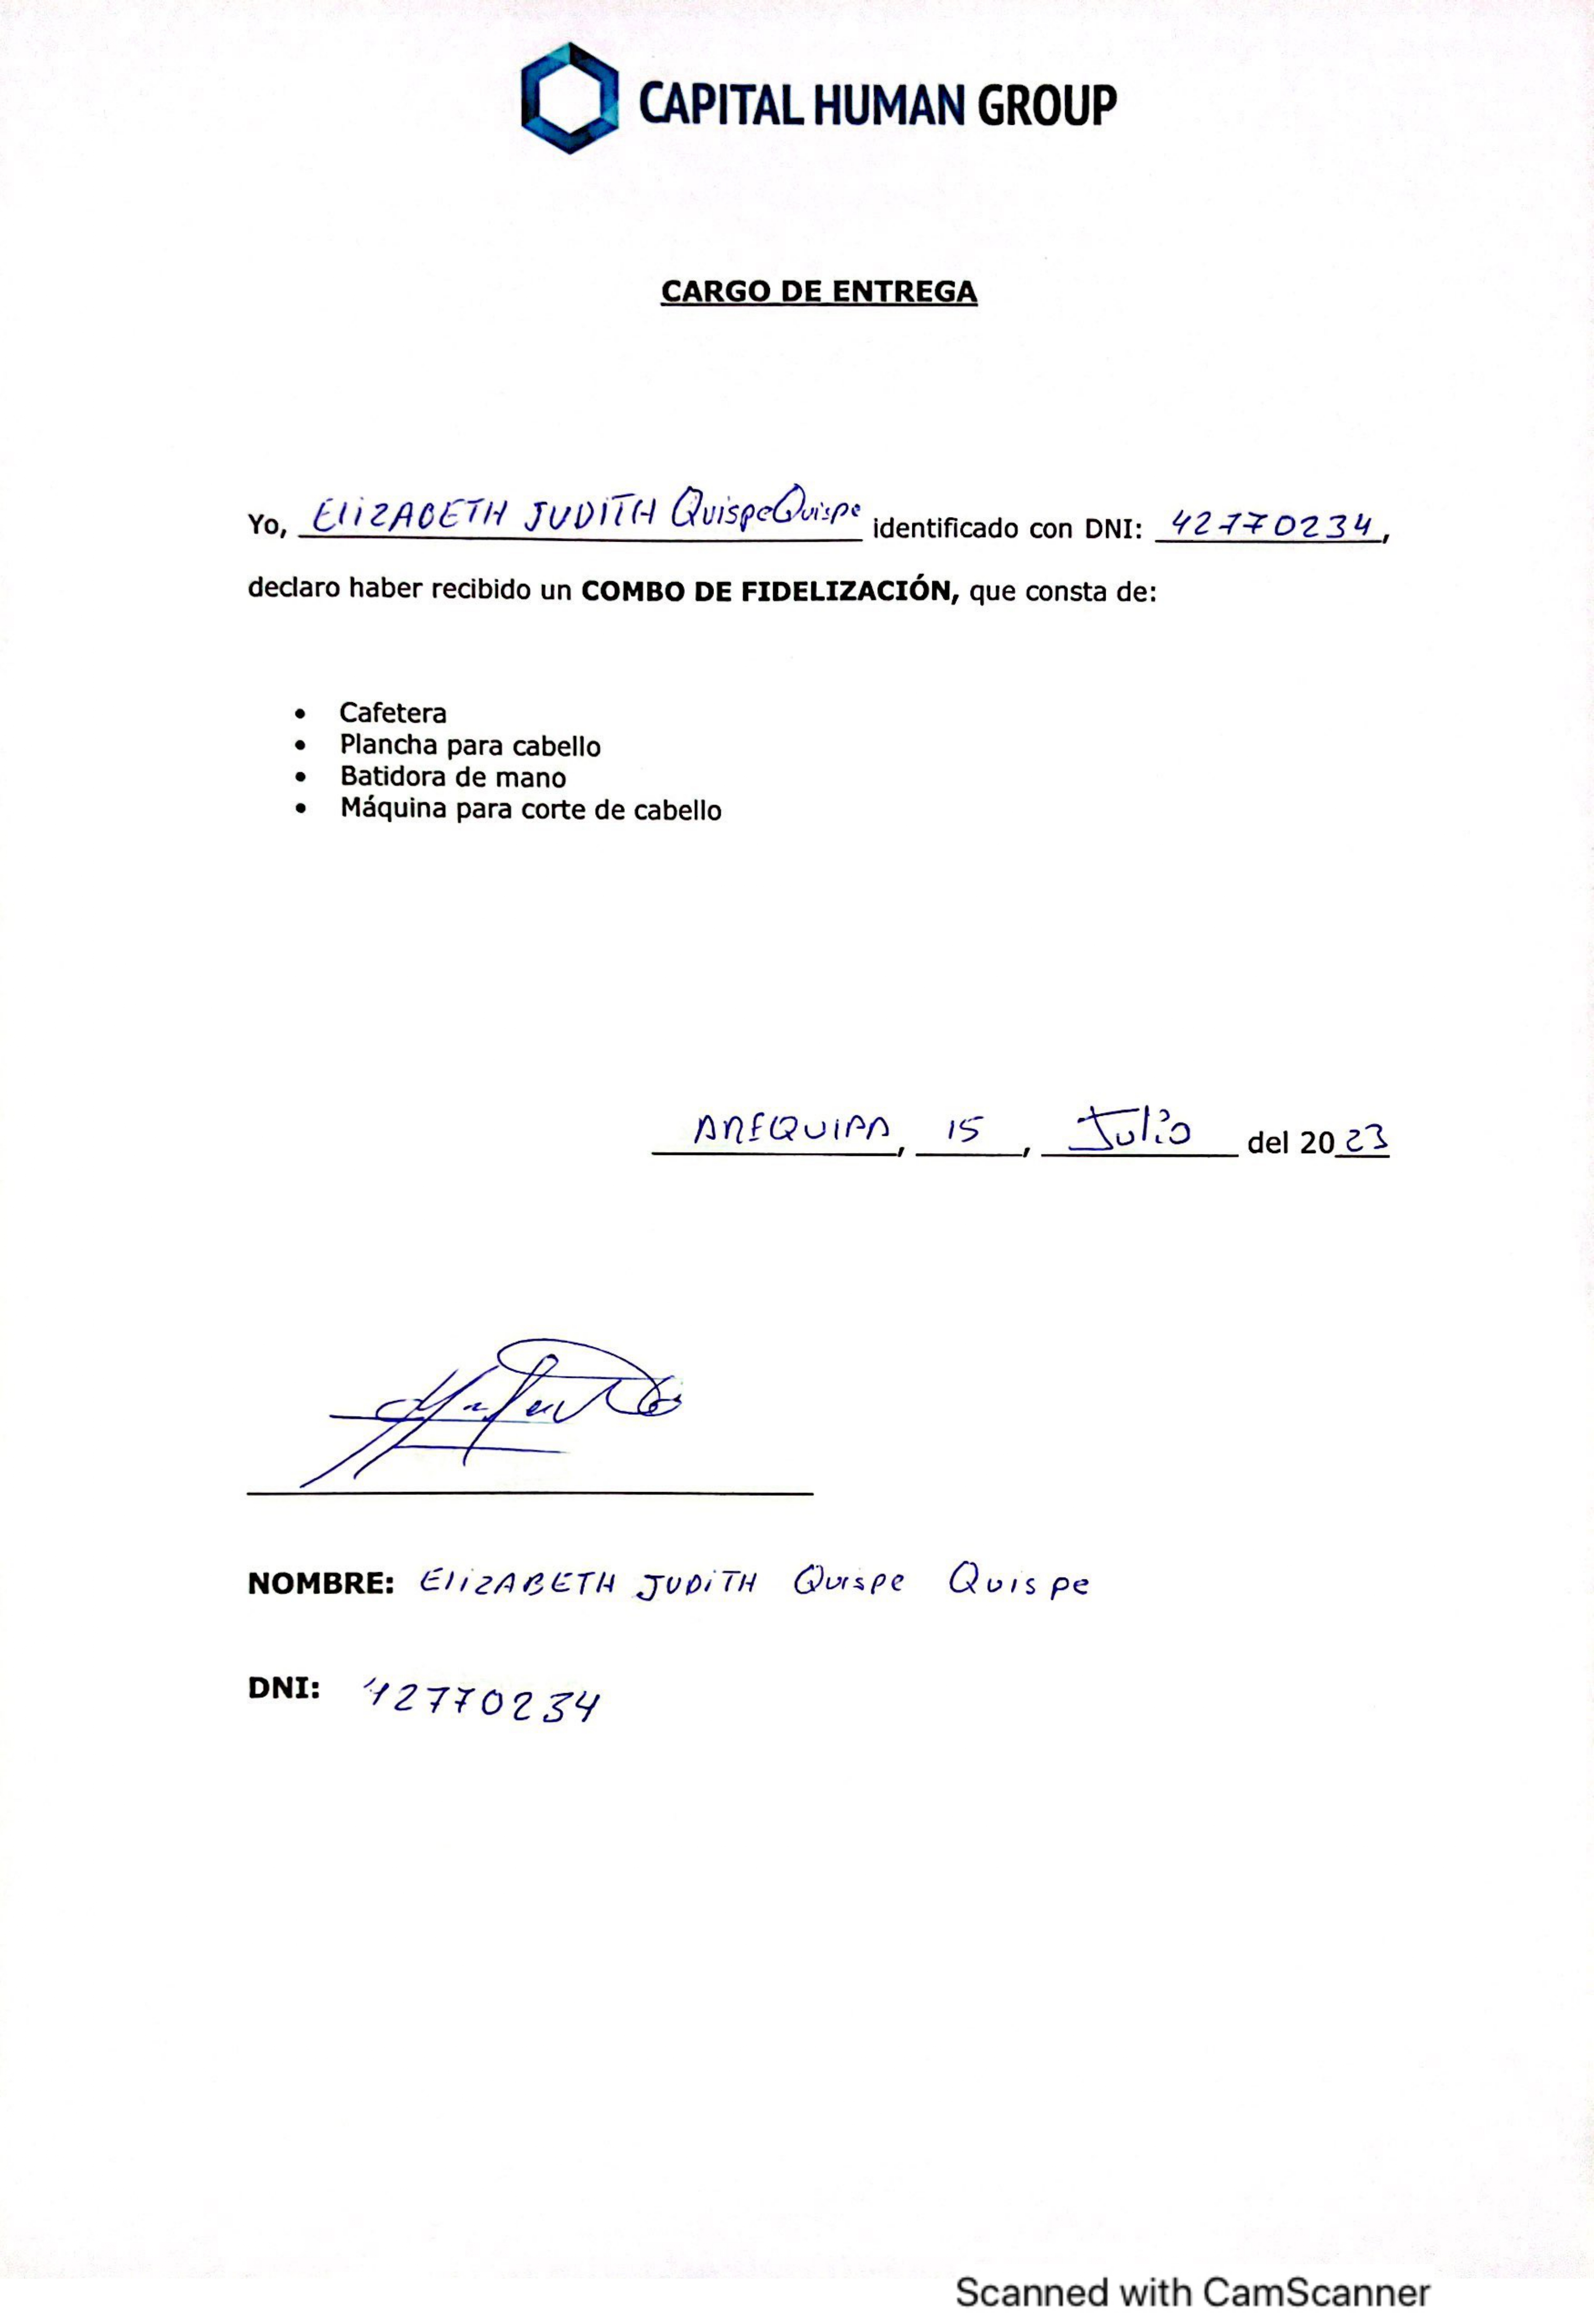 CAPITAL HUMAN GROUP
CARGO DE ENTREGA
Yo, EliZABETH JUDiTH QuispeQuispe identificado con DNI: 42770234,
declaro haber recibido un COMBO DE FIDELIZACIÓN, que consta de:
• Cafetera
• Plancha para cabello
• Batidora de mano
• Máquina para corte de cabello
AREQUIPA, 15, Julio del 2023
NOMBRE: EliZABETH JUDiTH Quispe Quispe
DNI: 42770234
Scanned with CamScanner